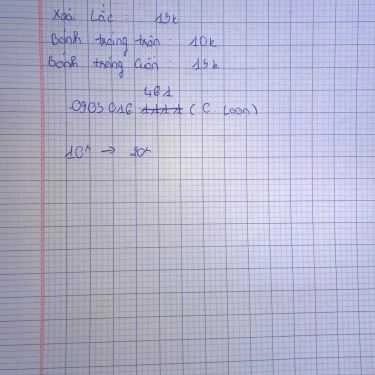 Xoài Lắc : 15k
Bánh tráng trộn : 10k
Bánh tráng Cuốn : 15k
461
0903 016 (C Loan)
10h → 20h